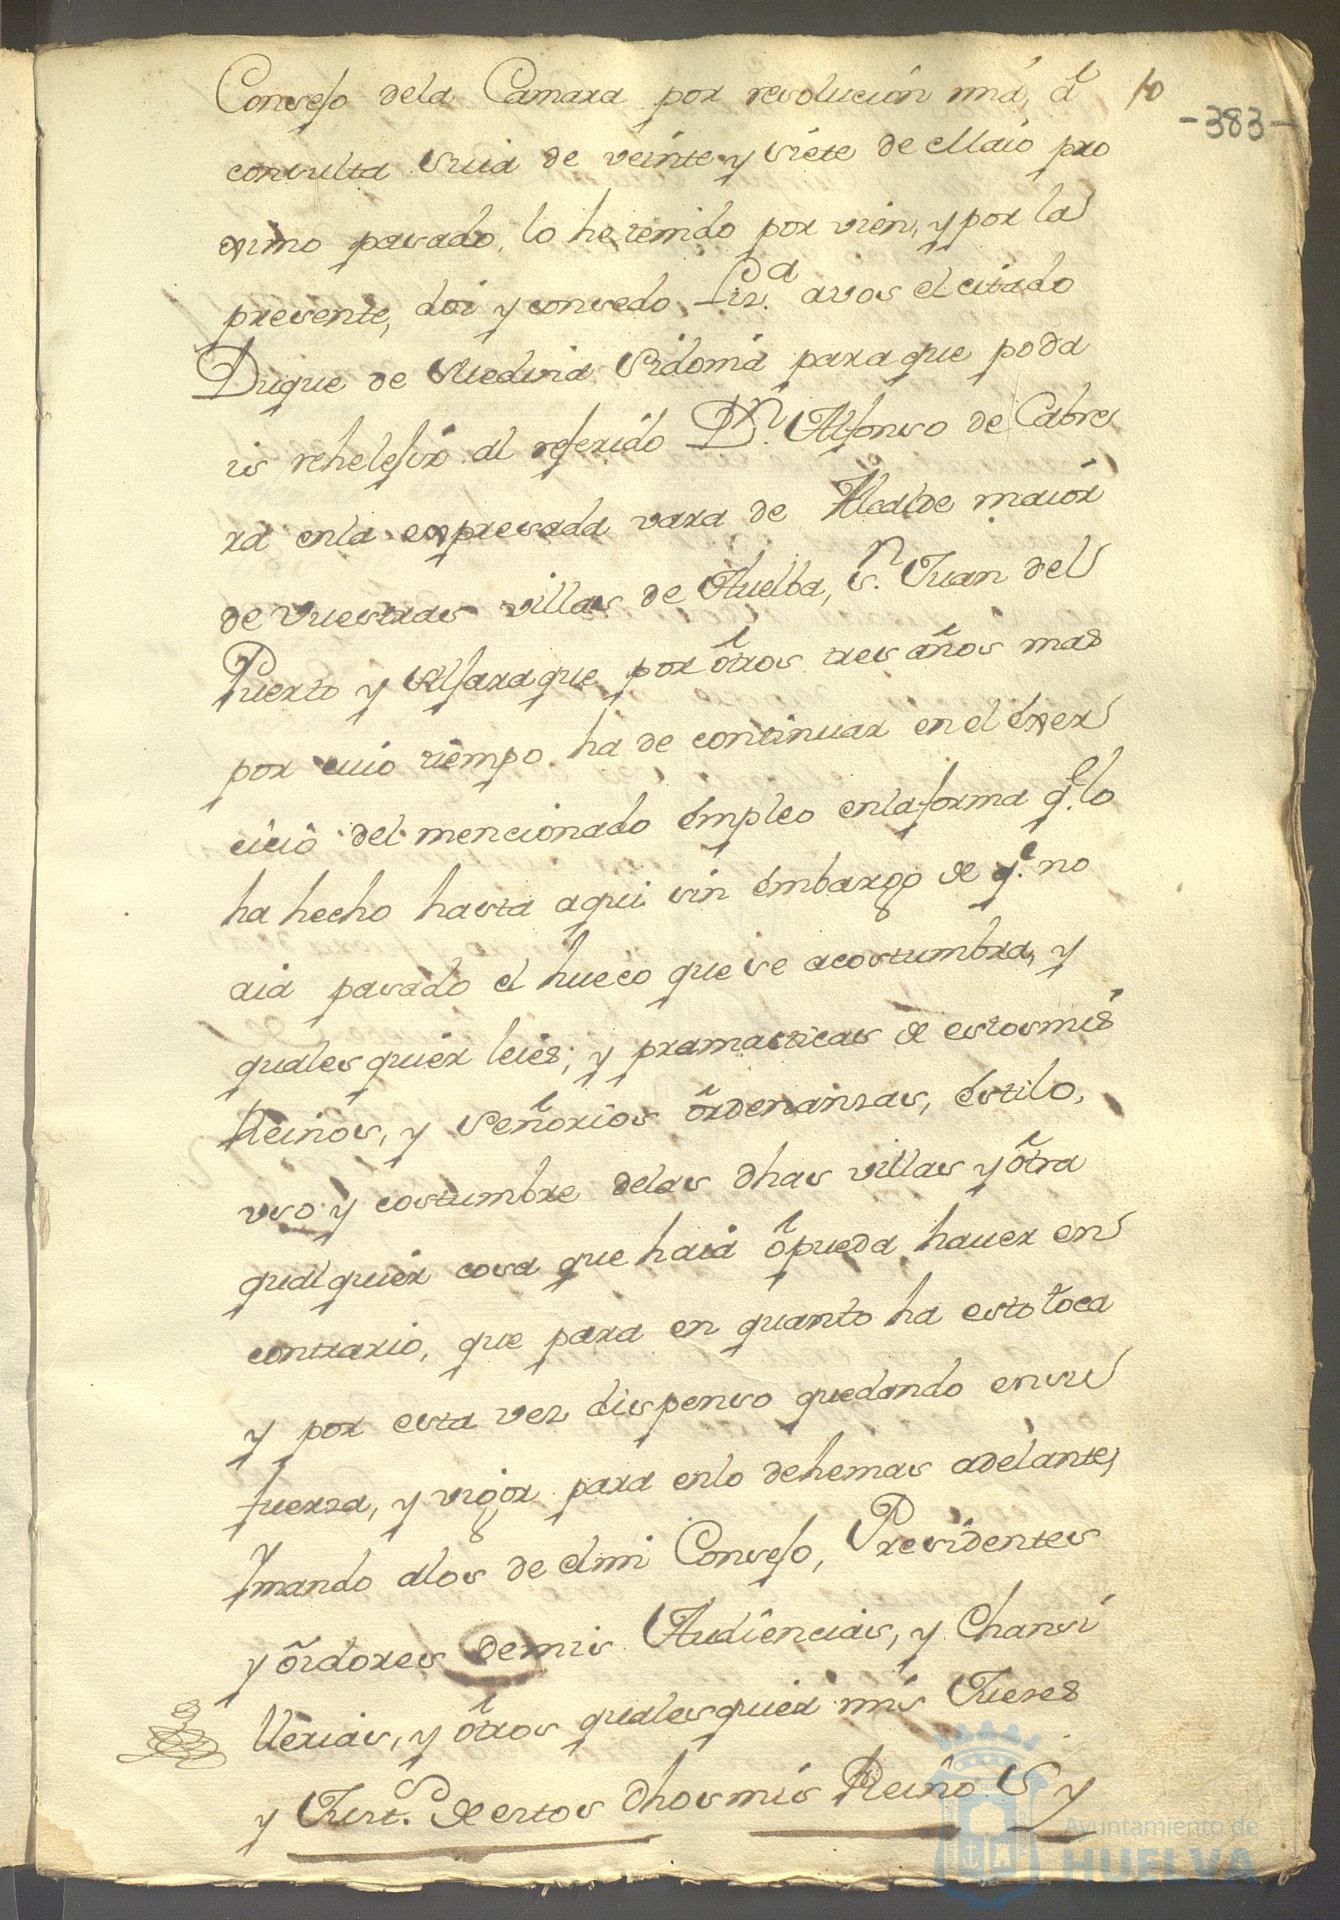 Consejo dela Camara por resolucion mia, á 10
-383-
consulta suia de veinte y siete de Maio pro
ximo pasado, lo he tenido por vien, y por la
presente, doi y consedo liz.ª avos el citado
Duque de Medina Sidonia para que poda
is rehelejir al referido D.n Alfonso de Cabre
ra enla expresada vara de Alcalde maior
de vuestras villas de Huelba, S.n Juan del
Puerto y Alfaraque por otros tres años mas
por cuio tiempo ha de continuar en el exer
cicio del mencionado empleo enla forma q.e lo
ha hecho hasta aqui sin embargo de q.e no
aia pasado el hueco que se acostumbra, y
quales quier leies; y pramasticas de estos mis
Reinos, y Señorios ordenansas, estilo,
uso y costumbre delas dhas villas y otra
qualquier cosa que haia o pueda hauer en
contrario, que para en quanto ha esto toca
y por esta vez dispenso quedando en su
fuerza, y vigor para enlo dehemas adelante,
Ymando alos de el mi Consejo, Presidentes
y oidores de mis Audiencias, y Chansi
llerias, y otros qualesquier mis Jueses
y Just.s de estos dhos mis Reinos y
Ayuntamiento de
HUELVA